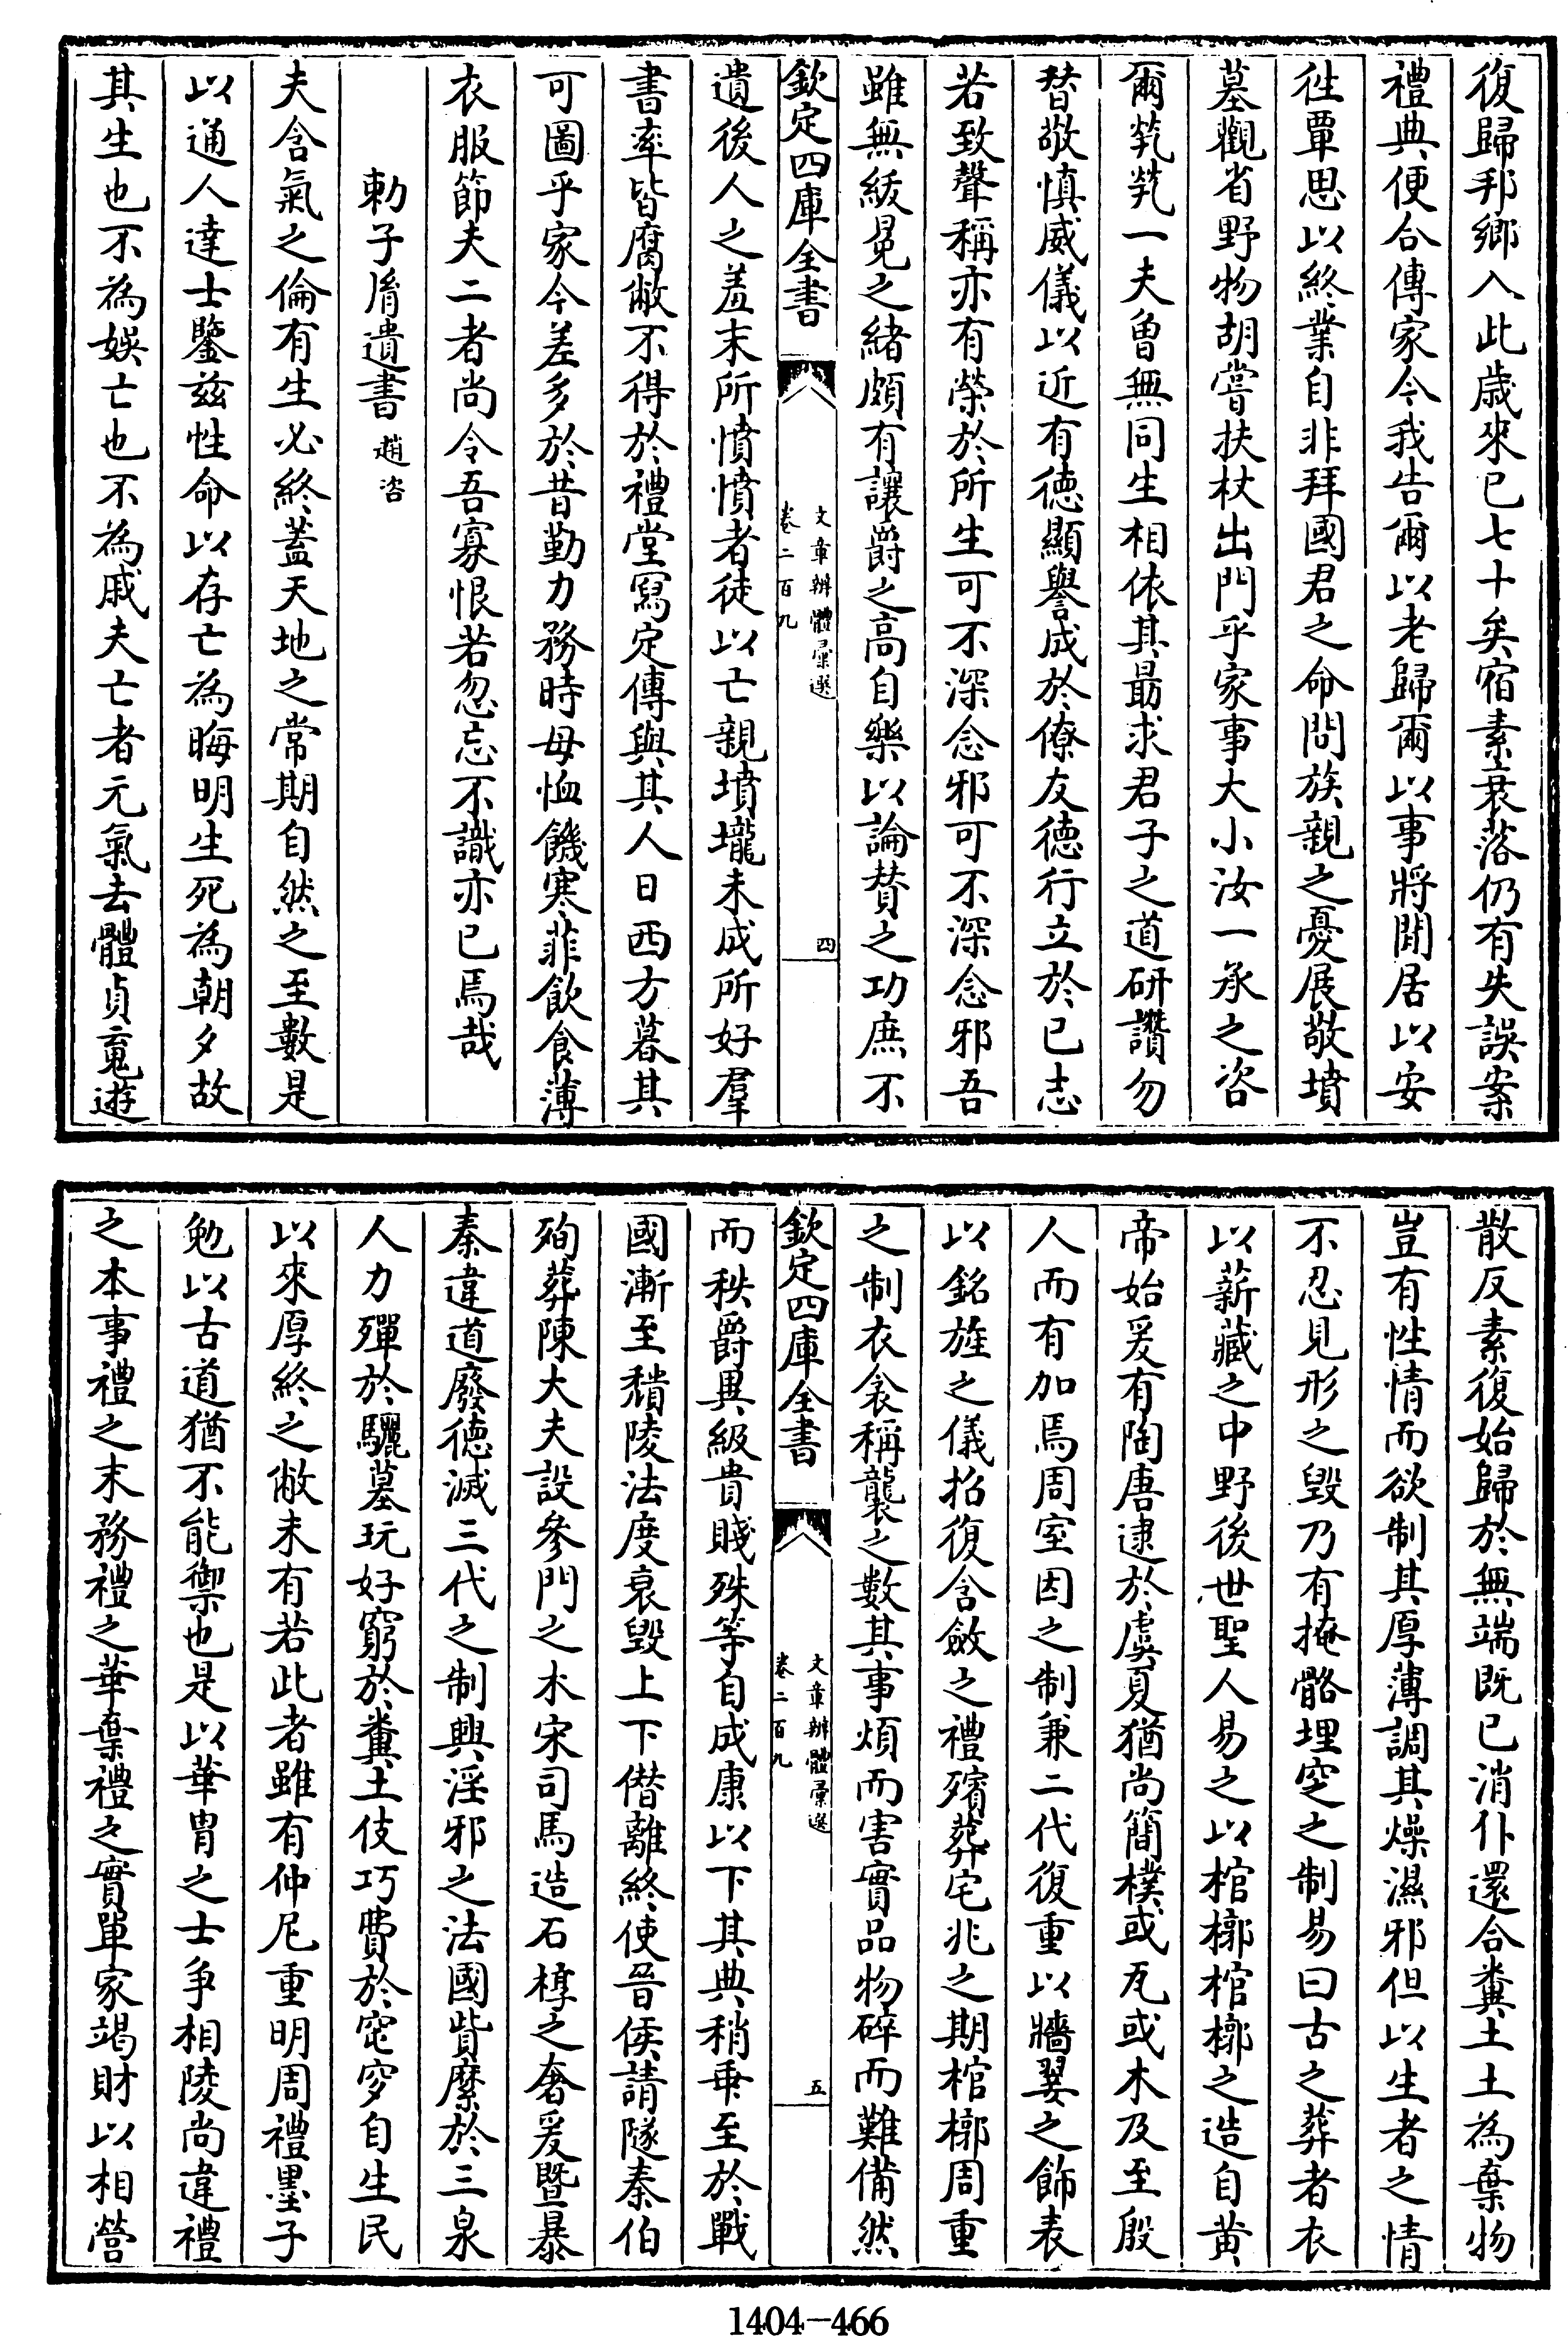 復歸邦鄉入此歳來已七十矣宿素衰落仍有失誤案
禮典便合傳家今我告爾以老歸爾以事將閒居以安
徃覃思以終業自非拜國君之命問族親之憂展敬墳
墓觀省野物胡嘗扶杖出門乎家事大小汝一承之咨
爾煢煢一夫曾無同生相依其朂求君子之道研讚勿
替敬慎威儀以近有徳顯譽成於僚友徳行立於已志
若致聲稱亦有榮於所生可不深念邪可不深念邪吾
雖無紱冕之緒頗有讓爵之高自樂以論賛之功庶不
欽定四庫全書
文章辨體彚選
卷二百九
四
遺後人之羞末所憤憤者徒以亡親墳壠未成所好羣
書率皆腐敝不得於禮堂寫定傳與其人日西方暮其
可圖乎家今差多於昔勤力務時毋恤饑寒菲飲食薄
衣服節夫二者尚令吾寡恨若忽忘不識亦已焉哉
勅子胥遺書 趙咨
夫含氣之倫有生必終蓋天地之常期自然之至數是
以通人達士鑒兹性命以存亡為晦明生死為朝夕故
其生也不為娛亡也不為戚夫亡者元氣去體貞䰟遊
散反素復始歸於無端既已消仆還合糞土土為棄物
豈有性情而欲制其厚薄調其燥濕邪但以生者之情
不忍見形之毀乃有掩骼埋窆之制易曰古之葬者衣
以薪藏之中野後世聖人易之以棺槨棺槨之造自黄
帝始爰有陶唐逮於虞夏猶尚簡樸或瓦或木及至殷
人而有加焉周室因之制兼二代復重以牆翣之飾表
以銘旌之儀招復含斂之禮殯葬宅兆之期棺槨周重
之制衣衾稱襲之數其事煩而害實品物碎而難備然
欽定四庫全書
文章辨體彚選
卷二百九
五
而秩爵異級貴賤殊等自成康以下其典稍乗至於戰
國漸至穨陵法度衰毀上下僣離終使晉侯請隧秦伯
殉葬陳大夫設參門之木宋司馬造石椁之奢爰暨暴
秦違道廢徳滅三代之制興淫邪之法國貲糜於三泉
人力殫於驪墓玩好窮於糞土伎巧費於窀穸自生民
以來厚終之敝未有若此者雖有仲尼重明周禮墨子
勉以古道猶不能禦也是以華胄之士爭相陵尚違禮
之本事禮之末務禮之華棄禮之實單家竭財以相營
1404-466